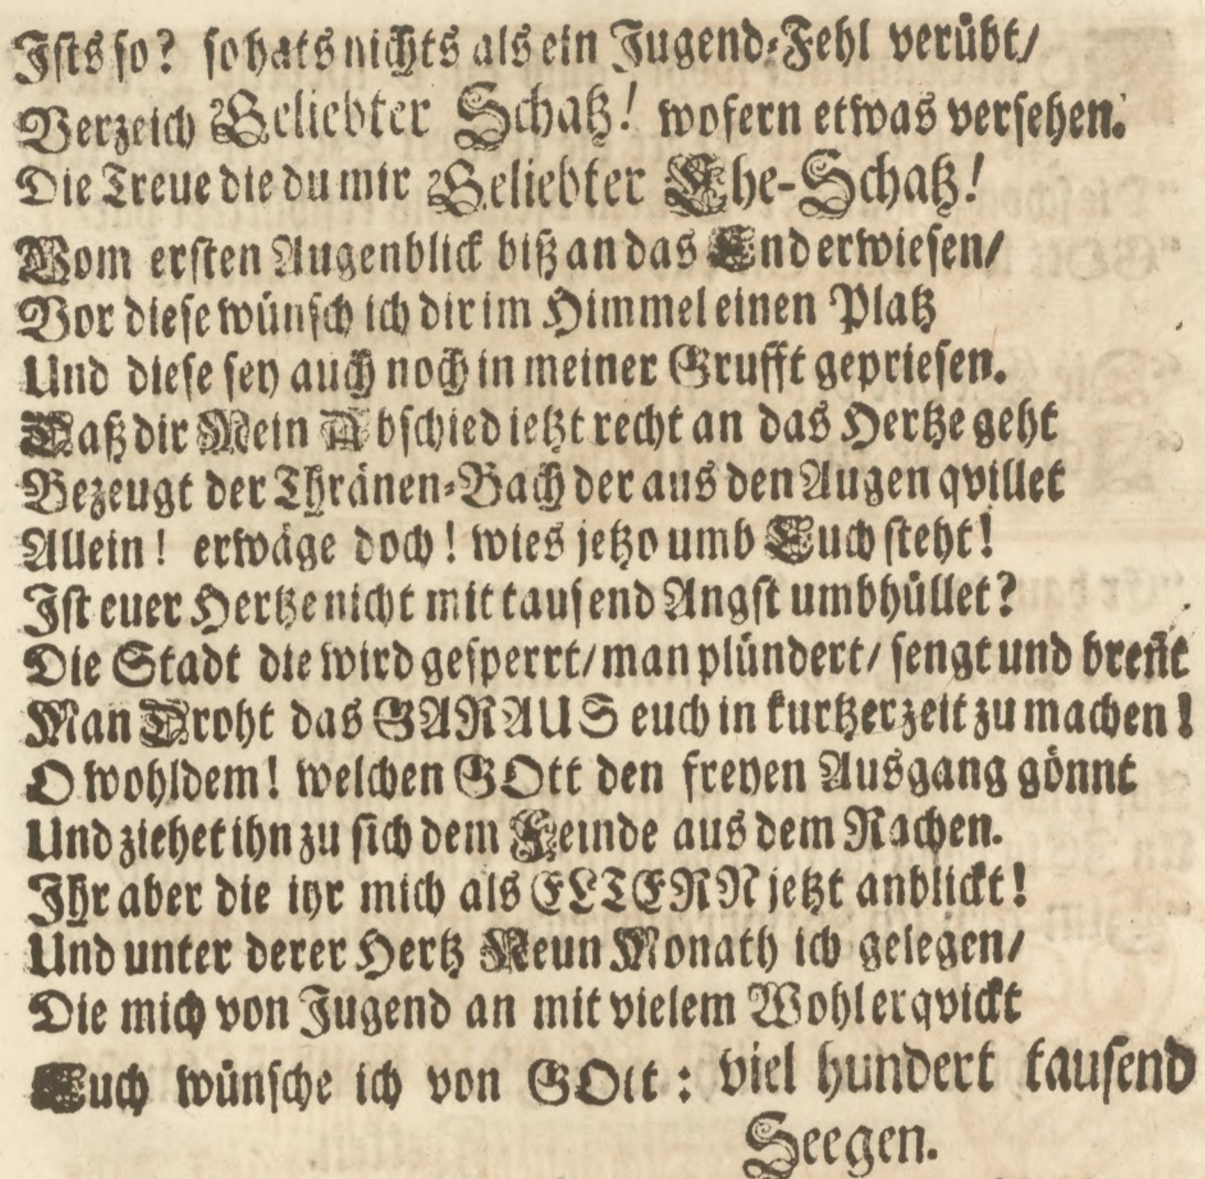 Ists so? so hats nichts als ein Jugend-Fehl verübt/
Verzeich Geliebter Schatz! wofern etwas versehen.
Die Treue die du mir Geliebter Ehe-Schatz!
Vom ersten Augenblick biß an das End erwiesen/
Vor diese wünsch ich dir im Himmel einen Platz
Und diese sey auch noch in meiner Grufft gepriesen.
Daß dir Mein Abschied ietzt recht an das Hertze geht
Bezeugt der Thränen-Bach der aus den Augen qvillet
Allein! erwäge doch! wies jetzo umb Euch steht!
Ist euer Hertze nicht mit tausend Angst umbhüllet?
Die Stadt die wird gesperrt/ man plündert/ sengt und breñt
Man Droht das GARAUS euch in kurtzer zeit zu machen!
O wohl dem! welchen GOtt den freyen Ausgang gönnt
Und ziehet ihn zu sich dem Feinde aus dem Rachen.
Ihr aber die ihr mich als ELTERN jetzt anblickt!
Und unter derer Hertz Neun Monath ich gelegen/
Die mich von Jugend an mit vielem Wohl erqvickt
Euch wünsche ich von GOtt: viel hundert tausend
Seegen.